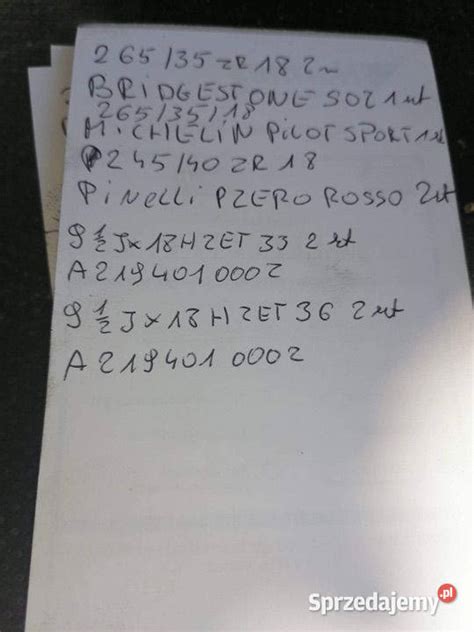 265/35 ZR 18 Z
BRIDGESTONE S02 1 szt
265/35/18
MICHELIN PILOT SPORT 1 szt
P245/40 ZR 18
PiRelli PZERO ROSSO 2szt
9 1/2 J x 18 H2 ET 33 2 szt
A 219 401 0002
9 1/2 J x 18 H2 ET 36 2 szt
A 219 401 0002
Sprzedajemy.pl